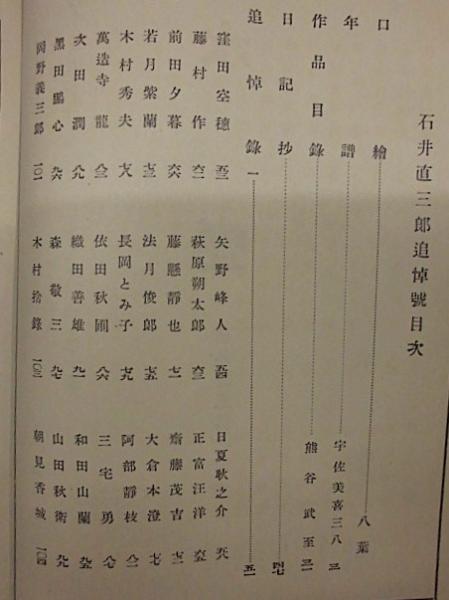 石井直三郎追悼號目次
口繪 八葉
年譜 宇佐美喜三八 三
作品目錄 熊谷武至 三一
日記抄 四七
追悼錄一 五一
窪田空穗 五二 矢野峰人 五四 日夏耿之介 五八
藤村作 六二 萩原朔太郎 六三 正富汪洋 六五
前田夕暮 六六 藤懸靜也 七一 齋藤茂吉 七二
若月紫蘭 七三 法月俊郎 七五 大倉本澄 七七
木村秀夫 七八 長岡とみ子 七九 阿部靜枝 八二
萬造寺龍 八三 依田秋圃 八六 三宅勇 八七
次田潤 八九 織田善雄 九一 和田山蘭 九五
黑田鵬心 九六 森敬三 九七 山田秋衛 九九
岡野義三郎 一〇一 木村捨錄 一〇三 朝見香城 一〇四